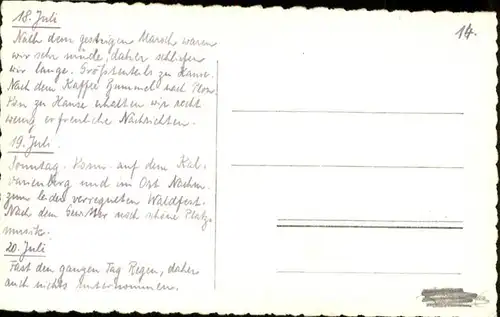 18. Juli
14.
Nach dem gestrigen Marsch waren
wir sehr müde, daher schliefen
wir lange. Größtenteils zu Hause.
Nach dem Kaffee Bummel nach
zu Hause erhalten wir recht
wenig erfreuliche Nachrichten.
19. Juli.
Sonntag. Vorm. auf dem Kal-
varienberg und im Ort Nachm.
zum leider verregneten Waldfest.
Nach dem Gewitter noch schöne Platz-
musik.
20. Juli
Fast den ganzen Tag Regen, daher
auch nichts unternommen.